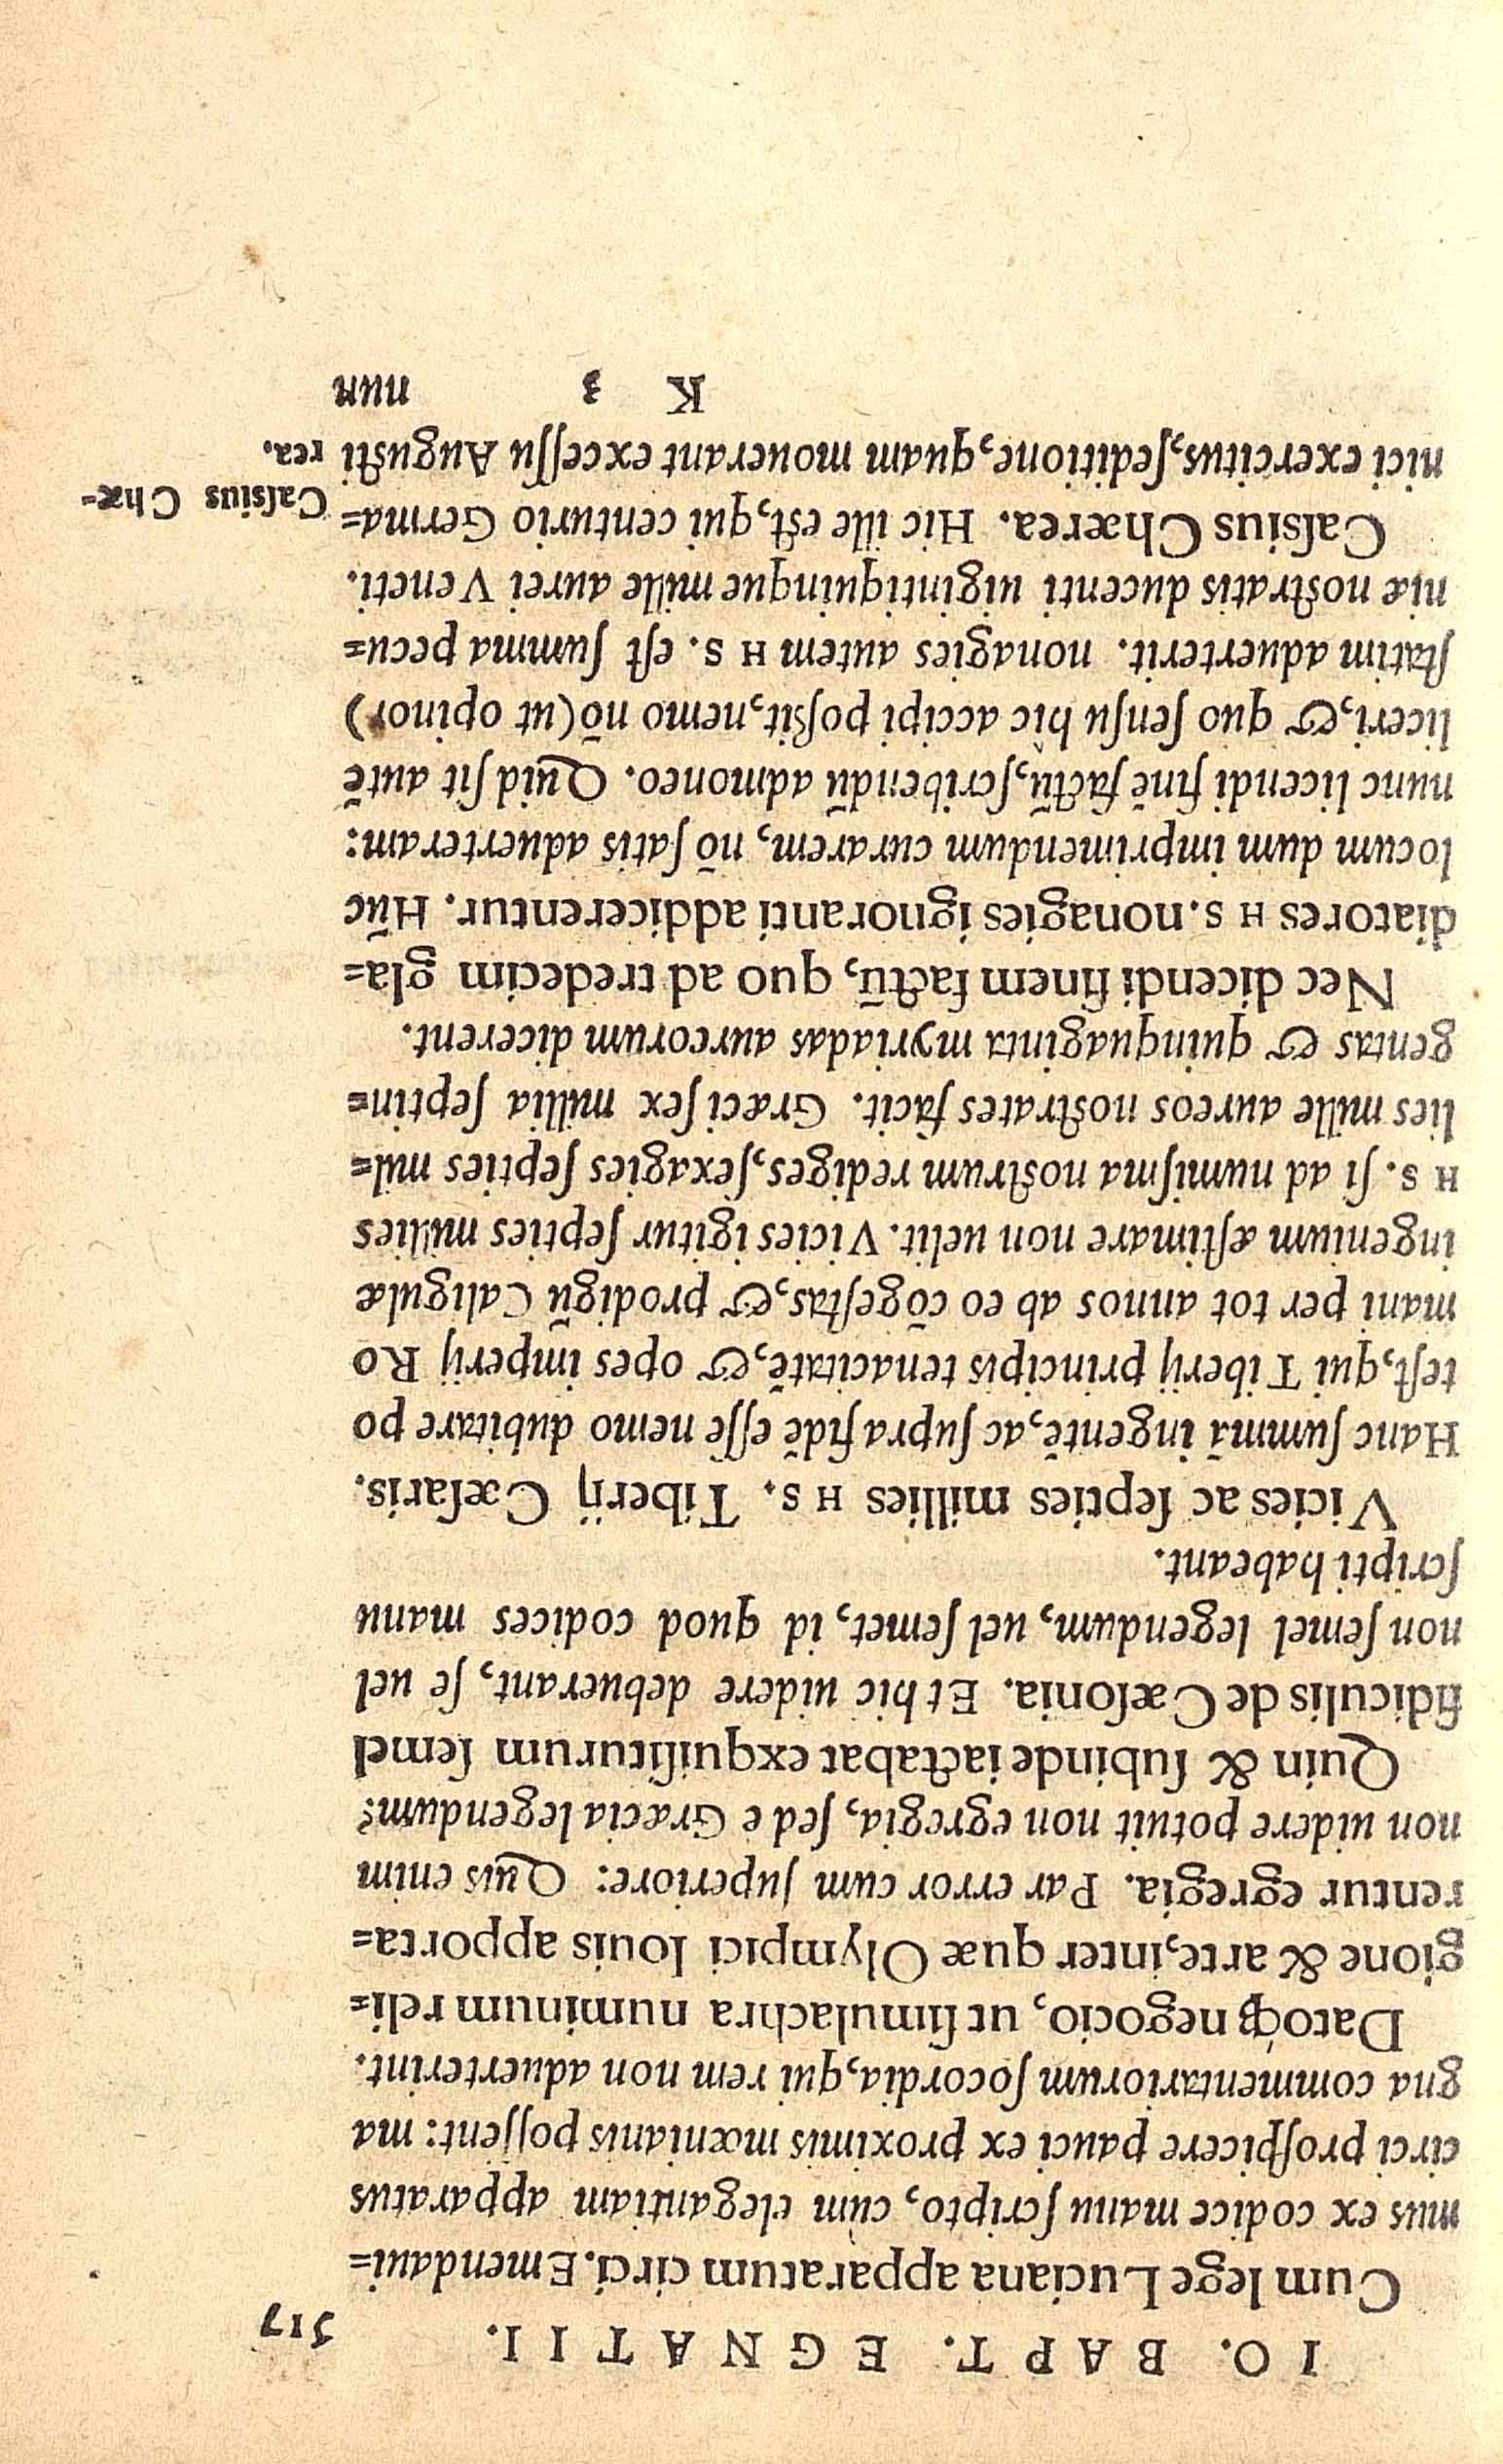 IO. BAPT. EGNATII. 517
Cum lege Luciana apparatum circi. Emendaui=
mus ex codice manu ſcripto, cùm elegantiam apparatus
circi proſpicere pauci ex proximis mœnianis poſſent: ma
gna commentariorum ſocordia, qui rem non aduerterint.
Datoq́ꝫ negocio, ut ſimulachra numinum reli=
gione & arte, inter quæ Olympici Iouis apporta=
rentur egregia. Par error cum ſuperiore: Quis enim
non uidere potuit non egregia, ſed e Græcia legendum?
Quin & ſubinde iactabat exquiſiturum ſemel
fidiculis de Cæſonia. Et hic uidere debuerant, ſe uel
non ſemel legendum, uel ſemet, id quod codices manu
ſcripti habeant.
Vicies ac ſepties millies H S. Tiberij Cæſaris.
Hanc ſummā ingentē, ac ſupra fidē eſſe nemo dubitare po
teſt, qui Tiberij principis tenacitatē, & opes imperij Ro
mani per tot annos ab eo cōgeſtas, & prodigū Caligulæ
ingenium æſtimare non uelit. Vicies igitur ſepties millies
H S. ſi ad numiſma noſtrum rediges, ſexagies ſepties mil=
lies mille aureos noſtrates facit. Græci ſex millia ſeptin=
gentas & quinquaginta myriadas aureorum dicerent.
Nec dicendi finem factū, quo ad tredecim gla=
diatores H S. nonagies ignoranti addicerentur. Hūc
locum dum imprimendum curarem, nō ſatis aduerteram:
nunc licendi finē factū, ſcribendū admoneo. Quid ſit autē
liceri, & quo ſenſu hic accipi poßit, nemo nō (ut opinor)
ſtatim aduerterit. nonagies autem H S. eſt ſumma pecu=
niæ noſtratis ducenti uigintiquinque mille aurei Veneti.
Caſsius Chærea. Hic ille eſt, qui centurio Germa=
nici exercitus, ſeditione, quam mouerant exceſſu Auguſti
Caſsius Chæ=
rea.
K 3 nun